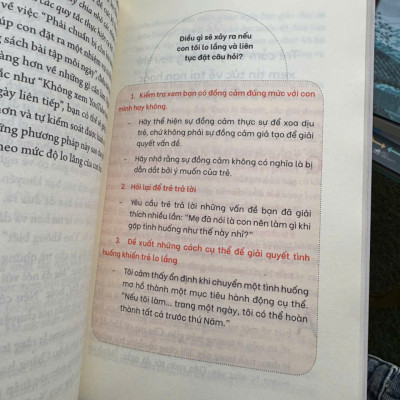 các quy tắc thực hiện
về việc "Phải chuẩn bị c
úp con đặt ra một nhiệm
g sách bài tập mỗi ngày",
àng hơn về những gì cần
ắc như "Không xem YouTube
gày liên tiếp", bạn có thể
hơn và tự kiểm soát được
ững phương pháp này sao
heo mức độ lo lắng của con
Điều gì sẽ xảy ra nếu
con tôi lo lắng và liên
tục đặt câu hỏi?
1. Kiểm tra xem bạn có đồng cảm đúng mức với con
mình hay không.
- Hãy thể hiện sự đồng cảm thực sự để xoa dịu
trẻ, chứ không phải sự đồng cảm giả tạo để giải
quyết vấn đề.
- Hãy nhớ rằng sự đồng cảm không có nghĩa là bị
dẫn dắt bởi ý muốn của trẻ.
2. Hỏi lại để trẻ trả lời
- Yêu cầu trẻ trả lời những vấn đề bạn đã giải
thích nhiều lần: "Mẹ đã nói là con nên làm gì khi
gặp tình huống như thế này nhỉ?"
3. Đề xuất những cách cụ thể để giải quyết tình
huống khiến trẻ lo lắng
- Tôi cảm thấy ổn định khi chuyển một tình huống
mơ hồ thành một mục tiêu hành động cụ thể.
"Nếu tôi làm... trang một ngày, tôi có thể hoàn
thành tất cả trước thứ Năm."